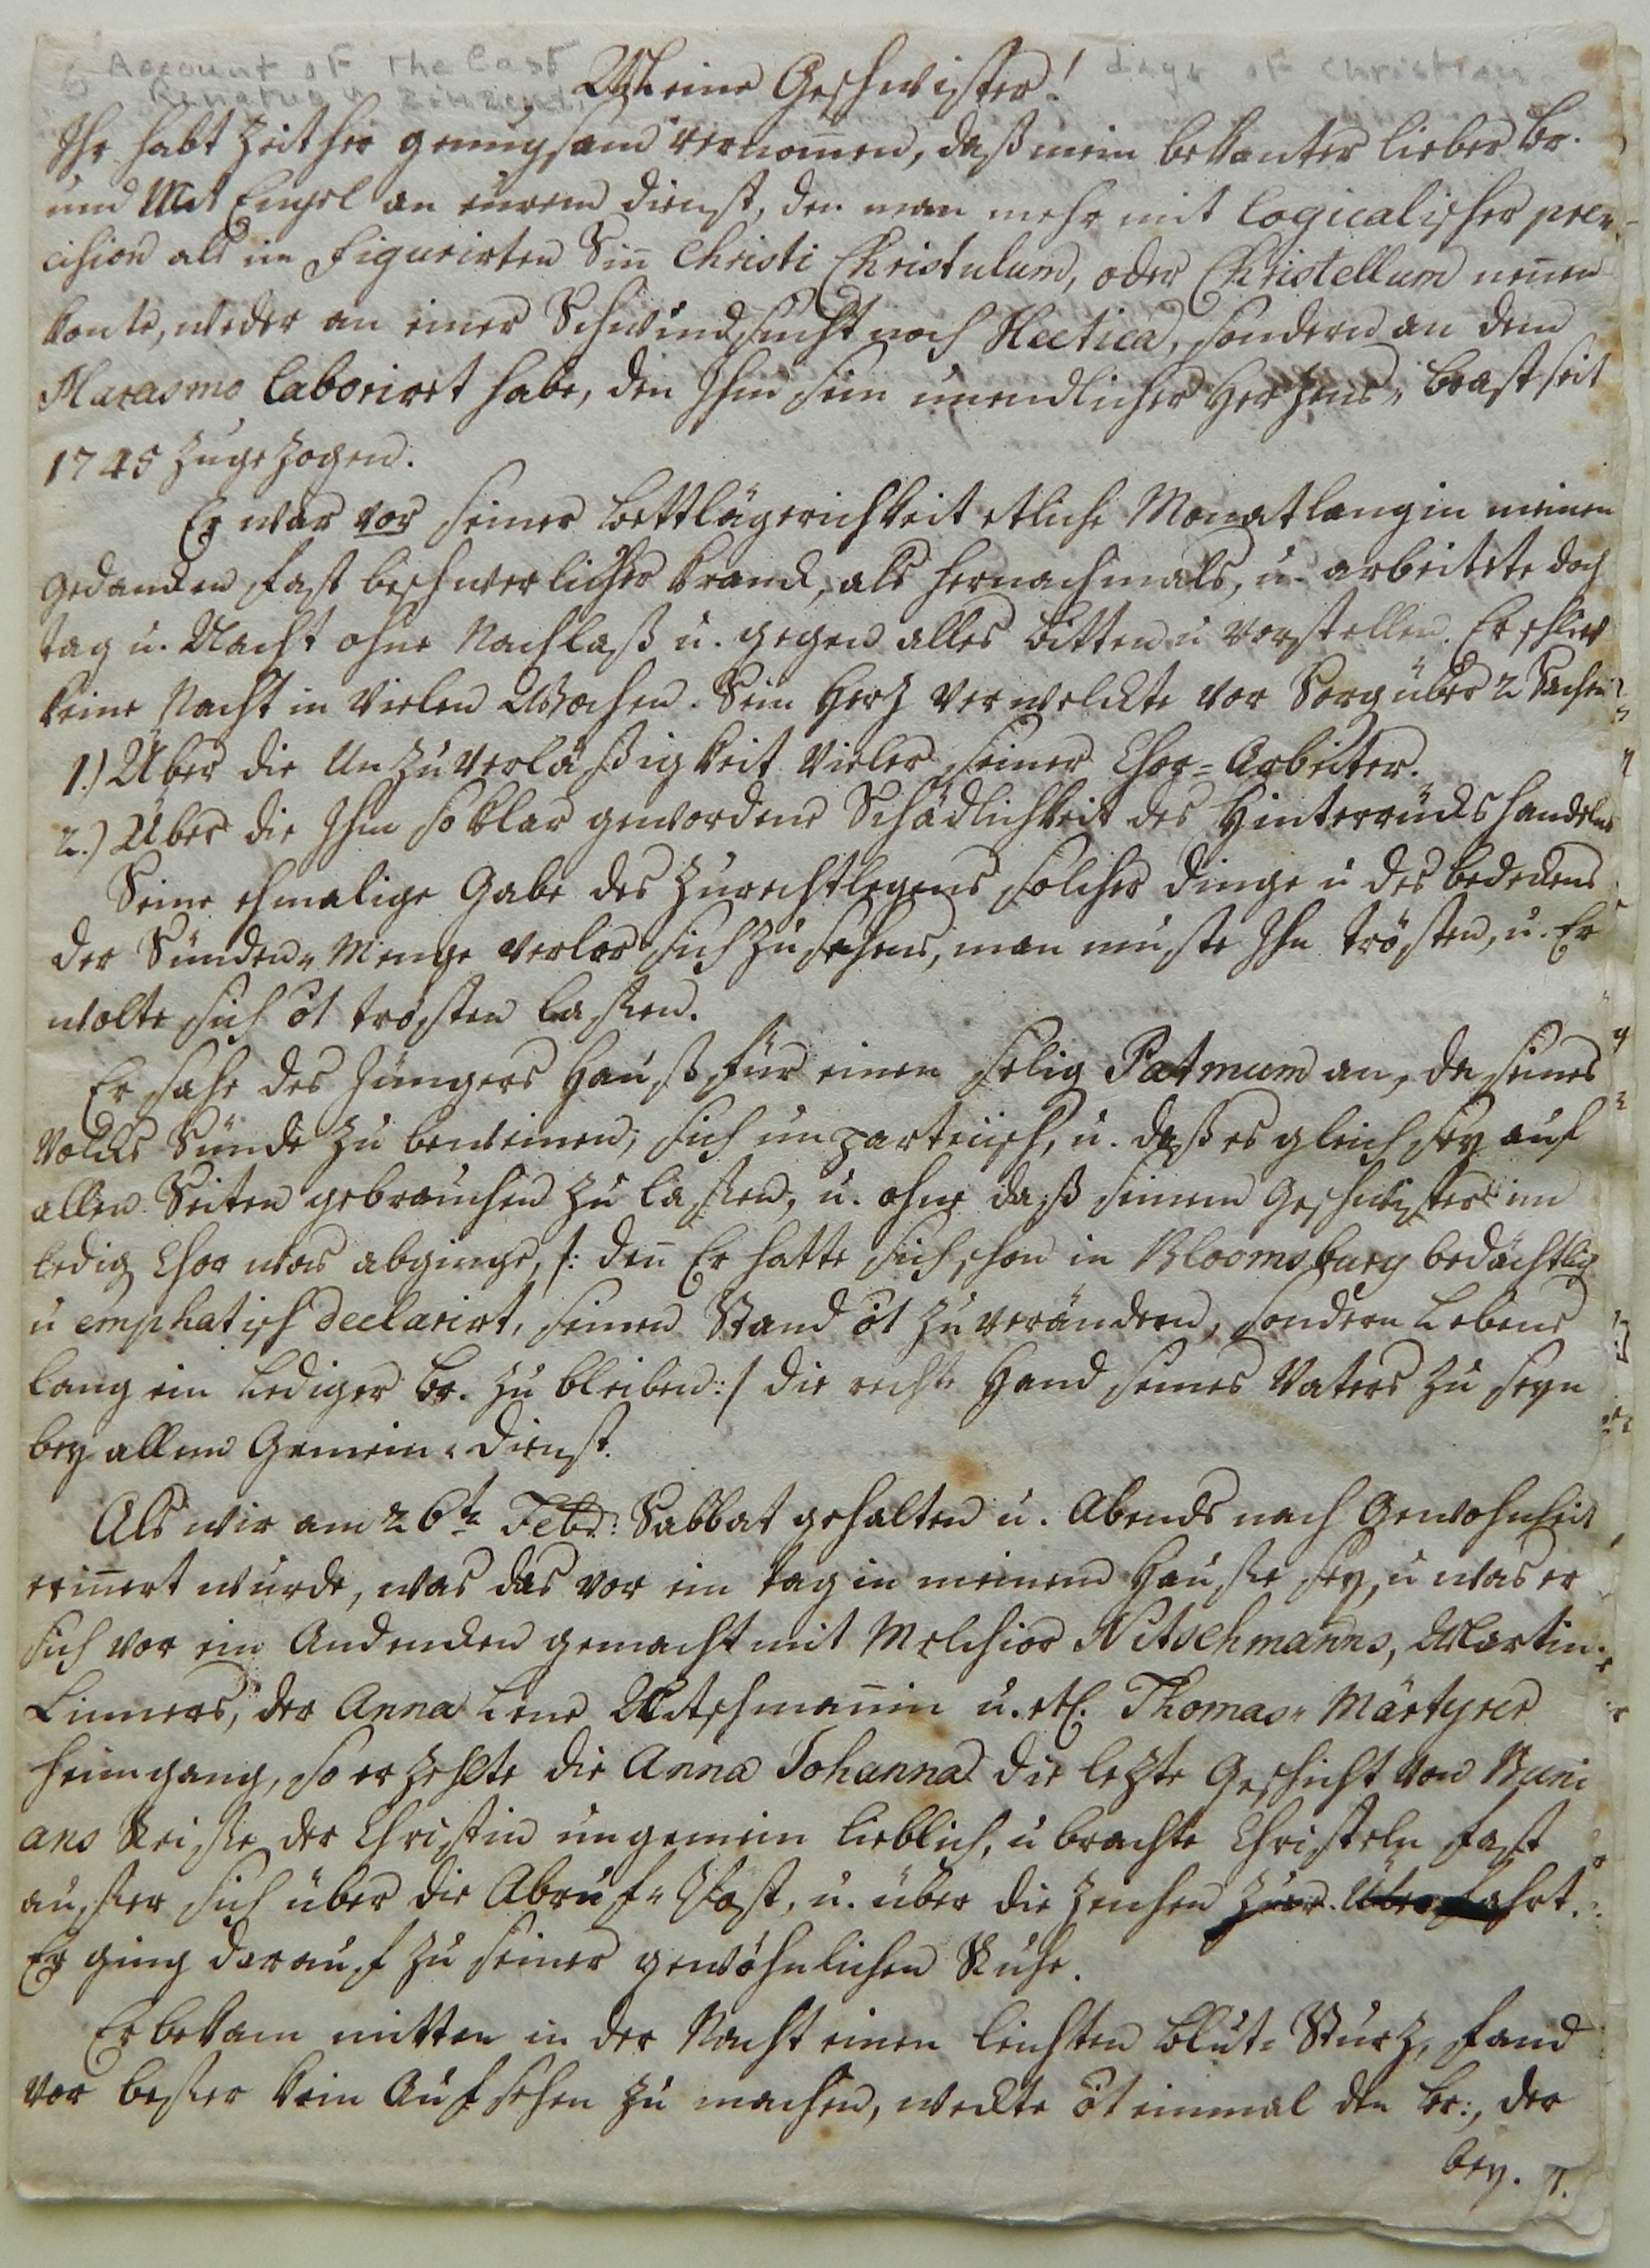 Account of the Last days of Christian
Renatus v. Zinzend.
Meine Geschwister!
Ihr habt zeither genugsam vernom̄en, daß mein bekanter lieber Br.
und Mit Engel an eurem dienst, den man mehr mit logicalischer præ„
cision als im figurirten Siñ Christi Christulum, oder Christellum neñen
konte, weder an einer Schwindsucht noch Hectica, sondern an dem
Marasmo laborirt habe, den Ihm sein unendlicher Herzens„ brast seit
1745 zugezogen.
Er war vor seiner bettlägerichkeit etliche Monat lang in meinen
gedancken fast beschwerlicher kranck, als hernachmals, u. arbeitete doch
tag u. Nacht ohne Nachlaß u. gegen alles bitten u vorstellen. Er schlief
keine Nacht in vielen Wochen. Sein Herz verwelckte vor Sorg über 2 Sachen
1.) Über die Unzuverläßigkeit vieler seiner Chor=Arbeiter.
2.) Über die Ihm so klar gewordene Schädlichkeit des Hinterrücks handelns
Seine ehmalige Gabe des Zurechtlegens solcher dinge u des bedeckens
der Sünden„ Menge verlor sich zusehens, man muste Ihn trösten, u. Er
wolte sich ōt trösten lassen.
Er sahe des Jüngers Hauß für einen selig Patmum an, da seines
Volcks Sünde zu beweinen, sich unparteiisch, u. daß es gleich sey auf
allen Seiten gebrauchen zu lassen, u. ohne daß seinem Geschwister im
ledig Chor was abginge, /: deñ Er hatte sich schon in Bloomsburg bedächtlig
u emphatisch declarirt, seinen Stand ōt zu verändern, sondern Lebens
lang ein lediger Br. zu bleiben:/ die rechte Hand seines Vaters zu seyn
bey allem Gemein„dienst.
Als wir am 26tn Febr: Sabbat gehalten u. Abends nach Gewohnheit
eriñert wurde, was das vor ein tag in meinem Hause sey, u was er
sich vor ein Andencken gemacht mit Melchior Nitschmanns, Martin
Linners, der Anna Lene Nitschmañin u. etl. Thomas„ Märtyrer
heimgang, so erzehlte die Anna Johanna die lezte Geschicht von Buni
ans Reise der Christin ungemein lieblich, u brachte Christeln fast
ausser sich über die Abruf„ Post, u. über die Zeichen zur Überfahrt.
Er ging darauf zu seiner gewöhnlichen Ruhe.
Er bekam mitten in der Nacht einen leichten Blut=Sturz, fand
vor besser kein Aufsehen zu machen, weckte ōt einmal den Br:, der
bey.